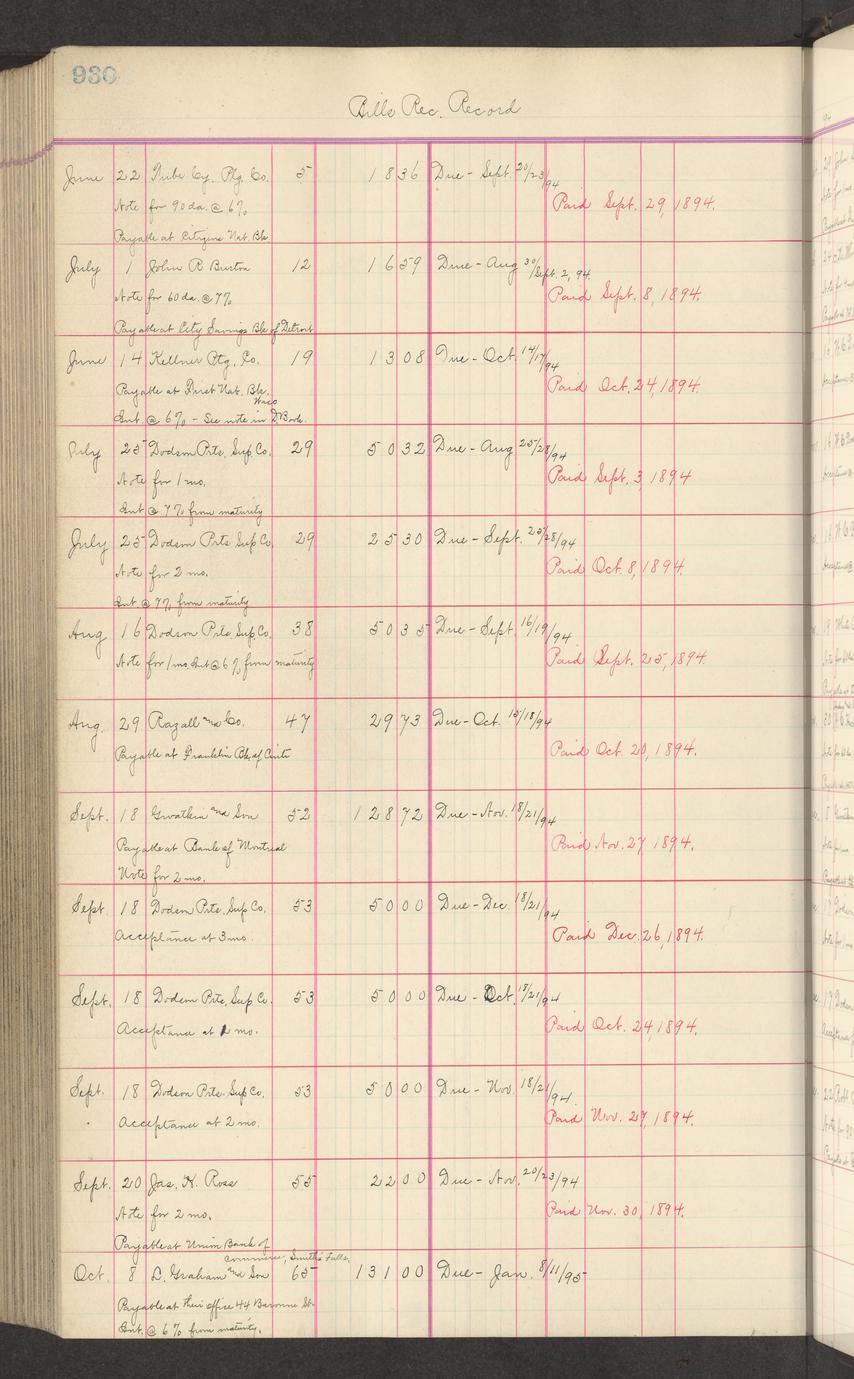 930
Bills Rec. Record
June 22 Ptg. Co. 5 18 36 Due - Sept. 20/23/94
Note for 90 da. @ 6%
Paid Sept. 29, 1894.
Payable at Citizens Nat. Bk.
July 1 John R Burton 12 16 59 Due - Aug 30/Sept. 2, 94
Note for 60 da. @ 7%
Paid Sept. 8, 1894.
Payable at City Savings Bk of Detroit
June 14 Kellner Ptg. Co. 19 13 08 Due - Oct. 14/17/94
Payable at First Nat. Bk.
Paid Oct. 24, 1894.
Waco
Int. @ 6% - See note in D. Book.
July 25 Dodson Prts. Sup Co. 29 50 32 Due - Aug 25/28/94
Note for 1 mo.
Paid Sept. 3, 1894
Int @ 7% from maturity
July 25 Dodson Prts Sup Co, 29 25 30 Due - Sept. 25/28/94
Note for 2 mo.
Paid Oct. 8, 1894.
Int @ 7% from maturity
Aug 16 Dodson Prts. Sup Co. 38 50 35 Due - Sept. 16/19/94
Note for 1 mo. Int @ 6% from maturity
Paid Sept. 25, 1894.
Aug. 29 Razall and Co. 47 29 73 Due - Oct. 15/18/94
Payable at Franklin Bk of Cinti
Paid Oct. 20, 1894.
Sept. 18 Gwatkin and Son 52 128 72 Due - Nov. 18/21/94
Payable at Bank of Montreal
Paid Nov. 27, 1894.
Note for 2 mo.
Sept 18 Dodson Prts. Sup Co. 53 50 00 Due - Dec. 18/21/94
Acceptance at 3 mo.
Paid Dec. 26, 1894.
Sept. 18 Dodson Prts. Sup Co. 53 50 00 Due - Oct. 18/21/94
Acceptance at 1 mo.
Paid Oct. 24, 1894.
Sept. 18 Dodson Prts. Sup Co. 53 50 00 Due - Nov. 18/21/94
Acceptance at 2 mo.
Paid Nov. 27, 1894.
Sept. 20 Jas. H. Ross 55 22 00 Due - Nov. 20/23/94
Note for 2 mo.
Paid Nov. 30, 1894.
Payable at Union Bank of
Commerce, Smiths Falls.
Oct. 8 L. Graham and Son 65 131 00 Due - Jan. 8/11/95
Payable at their office 44 Baronne St.
Int. @ 6% from maturity.